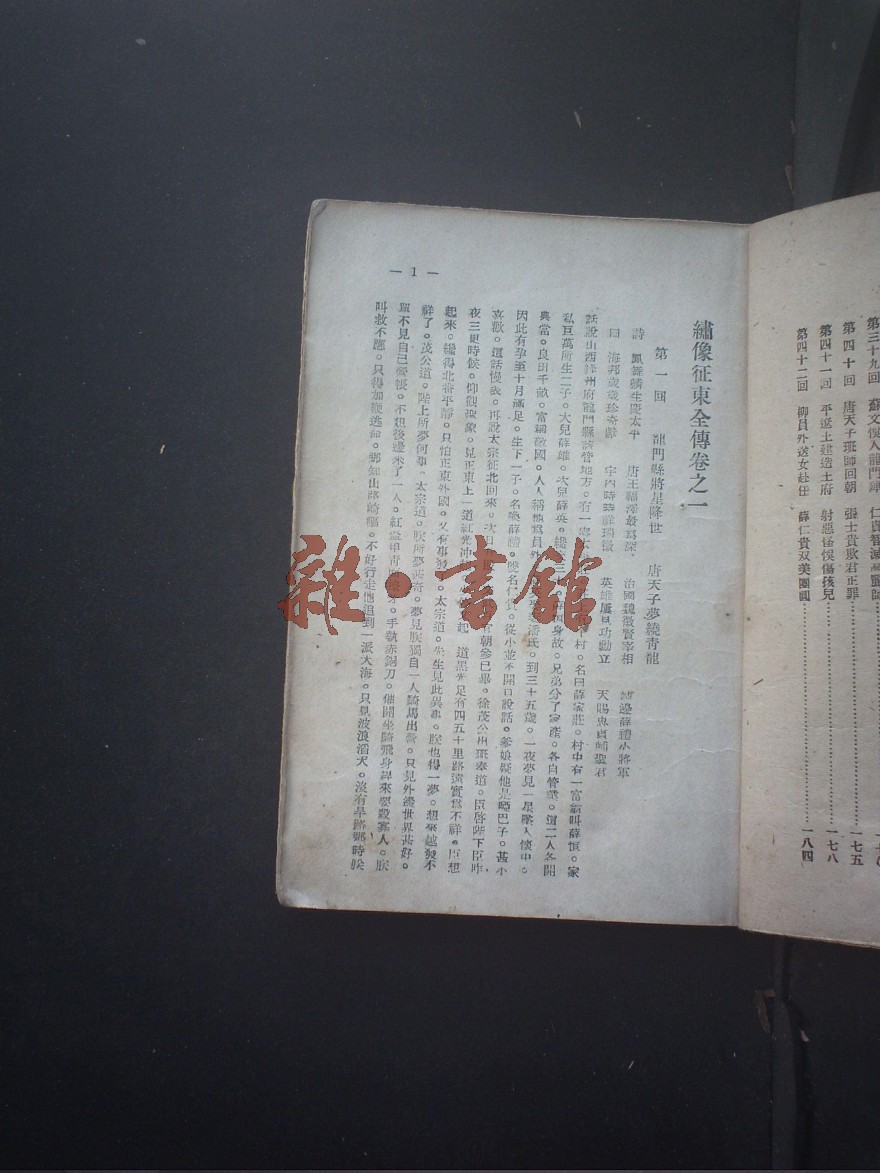 第三十九回 蘇文悞入龍門陣 仁貴智滅
第四十回 唐天子班師回朝 張士貴欺君正罪……一七五
第四十一回 平遼王建造王府 射惡怪悞傷孩兒……一七八
第四十二回 柳員外送女赴任 薛仁貴双美團圓……一八四
繡像征東全傳卷之一
第一回 龍門縣將星降世 唐天子夢繞青龍
詩 鳳舞麟生慶太平 唐王福澤最爲深 治國魏徵賢宰相 薛禮小將軍
曰 海邦歲歲珍奇獻 宇內時時祥瑞徵 英雄屢見功勳立 天賜忠貞輔聖君
話說山西絳州府龍門縣該管地方。有一 村。名曰薛家莊。村中有一富翁叫薛恒。家
私巨萬所生二子。大兒薛雄。次兒薛英。 三十 身故。兄弟分了家產。各自管業。這二人各開
典當。良田千畝。富稱敵國。人人稱他爲員外。 潘氏。到三十五歲。一夜夢見一星墜入懷中。
因此有孕至十月滿足。生下一子。名喚薛禮。雙名仁貴。從小並不開口說話。爹娘疑他是啞巴子。甚小
喜歡。這話慢表。再說太宗征北回來。次日 官朝參已畢。徐茂公出班奏道。臣啓陛下臣昨
夜三更時候。仰觀 象。見正東上一道紅光冲 起 道黑光足有四五十里路遠實爲不祥。臣想
起來。纔得北番平靜。只怕正東外國。又有事發 。太宗道。先生見此異事。朕也得一夢。想來越發不
祥了。茂公道。陛上所夢何事。太宗道。朕所夢甚奇。夢見朕獨自一人騎馬出營。只見外邊世界甚好。
單不見自己營帳。不想後邊來了一人。紅盔甲青面獠牙。手執赤銅刀。催開坐騎飛身趕來要殺寡人。朕
叫救不應。只得加鞭逃命。那知山路崎嶇。不好行走他追到一派大海。只見波浪滔天。沒有旱路那時候
— 1 —
雜·書館